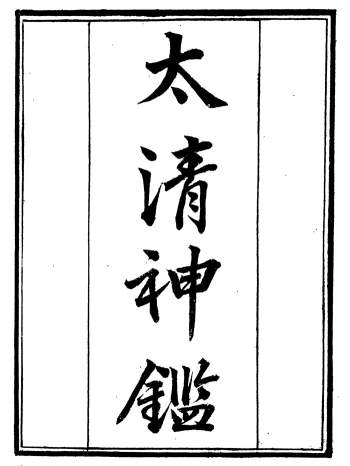 太清神鑑